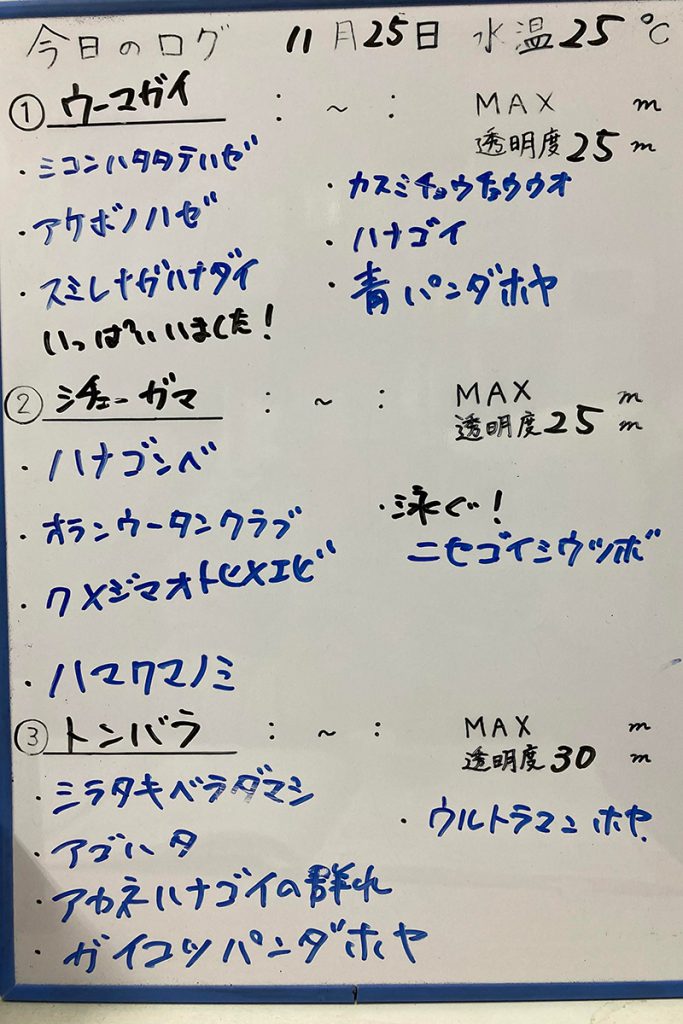 今日のログ 11月25日 水温25℃
① ウーマガイ : ~ : MAX m
透明度25m
・ミコンハタタテハゼ
・アケボノハゼ
・スミレナガハナダイ
いっぱいいました!
・カスミチョウチョウウオ
・ハナゴイ
・青パンダホヤ
② シチューガマ : ~ : MAX m
透明度25m
・ハナゴンベ
・オランウータンクラブ
・クメジマオトヒメエビ
・ハマクマノミ
・泳ぐ!
ニセゴイシウツボ
③ トンバラ : ~ : MAX m
透明度30m
・ミヤケベラダマシ
・アゴハタ
・アカネハナゴイの群れ
・ガイコツパンダホヤ
・ウルトラマンホヤ